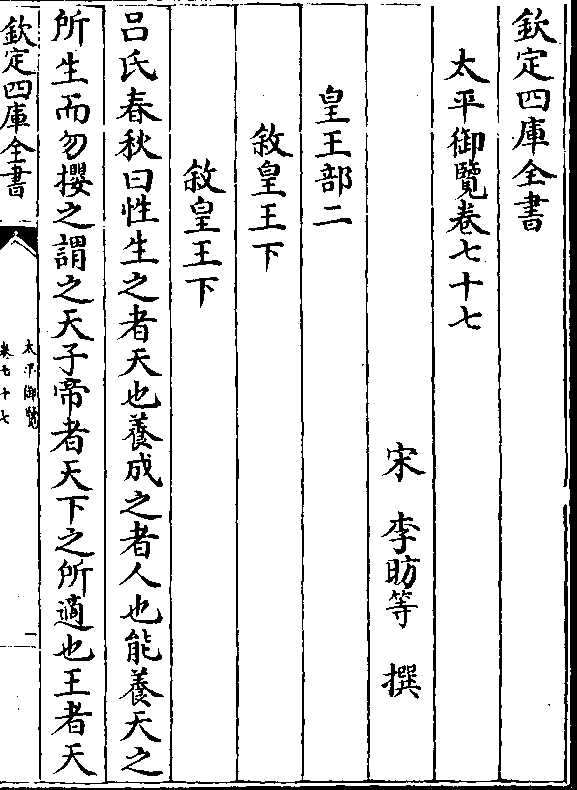 欽定四庫全書
太平御覽卷七十七
宋 李昉等 撰
皇王部二
敘皇王下
敘皇王下
吕氏春秋曰性生之者天也養成之者人也能養天之
所生而勿攖之謂之天子帝者天下之所適也王者天
欽定四庫全書
太平御覽
卷七十七
一